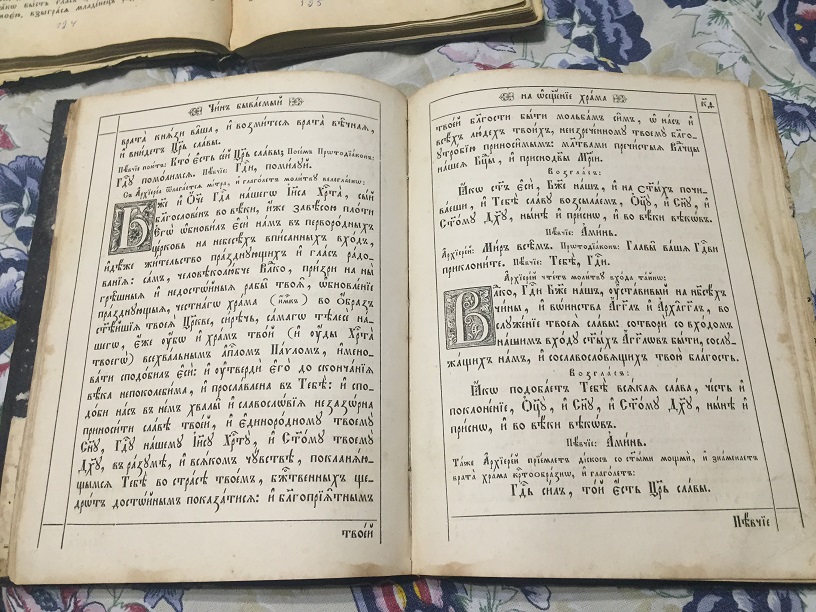 184
185
Чи́нъ быва́емый
врата̀ кня̑зи ва́ша, и҆ возми́тесѧ врата̀ вѣ̑чнаѧ,
и҆ вни́детъ Цр҃ь сла́вы.
Пѣвчіе пою́тъ: Кто̀ є҆́сть се́й Цр҃ь сла́вы; Посе́мъ Прѡтодїа́конъ:
Гдⷭ҇у помо́лимсѧ. Пѣвчїе: Гдⷭ҇и, поми́луй.
Съ А҆рхїере́а ѿѧ́етсѧ мі́тра, и҆ глаго́летъ моли́тву велегла́снѡ:
Бж҃е и҆ Ѻ҆́ч҃е Гдⷭ҇а на́шегѡ І҆и҃са Хрⷭ҇та̀, сы́й
благослове́нъ во вѣ́ки, и҆́же завѣ́сою пло́ти
Є҆гѡ̀ ѡ҆бнови́лъ є҆сѝ на́мъ въ перворо́дныхъ
цр҃ковь на небесѣ́хъ впи́санныхъ вхо́дъ,
и҆дѣ́же жи́тельство пра́зднующихъ и҆ гла́съ ра́до-
ванїѧ: са́мъ, человѣколю́бче Влⷣко, при́зри на ны̀
грѣ́шныѧ и҆ недостѡ́йныѧ рабы̑ твоѧ̑, ѡ҆бновле́нїе
пра́зднующыѧ, честна́гѡ хра́ма (и҆́мⷬ҇къ) во ѡ҆́бразъ
ст҃ѣ́йшїѧ твоеѧ̀ Цр҃кве, си́рѣчь, са́магѡ тѣлесѐ на́-
шегѡ, є҆́же ᲂу҆́бѡ и҆ хра́мъ тво́й (и҆ ᲂу҆́ды Хрⷭ҇та̀
твоегѡ̀) всехва́льнымъ а҆пⷭ҇ломъ Па́ѵломъ, и҆менО-
ва́ти сподо́билъ є҆сѝ: и҆ ᲂу҆твердѝ є҆го̀ до сконча́нїѧ
вѣ́ка непоколеби́ма, и҆ просла́влена въ Тебѣ̀: и҆ спо-
до́би на́съ въ не́мъ хвалы̑ и҆ славосло́вїѧ незазо́рна
приноси́ти сла́вѣ твое́й, и҆ Є҆диноро́дному твоемУ̀
Сн҃у, Гдⷭ҇у на́шему І҆и҃су Хрⷭ҇тУ̀, и҆ Ст҃о́му твоему̀
Дх҃у, въ ра́зумѣ, и҆ всѧ́комъ чу́вствѣ, покланѧ́ю-
щымсѧ Тебѣ̀ во стра́сѣ твое́мъ, бжⷭ҇твенныхъ ще-
дро́тъ достѡ́йнымъ показа́тисѧ: и҆ благопрїѧ̑тнымъ
твое́й
на ѡ҆сщ҃е́нїе хра́ма
к҃д
твое́й бл҃гости бы́ти мольба́мъ си̑мъ, ѡ҆ на́съ и҆
всѣ́хъ лю́дехъ твои́хъ, неизрече́нному твоемУ̀ благо-
ᲂу҆тро́бїю приноси̑мымъ: мл҃твами пречи́стыѧ Влⷣчцы
на́шеѧ Бц҃ы, и҆ приснодв҃ы Мр҃і́и.
Возгла́съ:
Ꙗ҆́кѡ ст҃ъ є҆сѝ, Бж҃е на́шъ, и҆ на ст҃ы́хъ почи-
ва́еши, и҆ Тебѣ̀ сла́ву возсыла́емъ, Ѻ҆ц҃у̀, и҆ Сн҃у, и҆
Ст҃о́му Дх҃у, ны́нѣ и҆ при́снѡ, и҆ во вѣ́ки вѣкѡ́въ.
Пѣвчїе: А҆ми́нь.
А҆рхїере́й: Ми́ръ всѣ̑мъ. Прѡтодїа́конъ: Главы̑ ва́шѧ Гдⷭ҇ви
приклони́те. Пѣвчїе: Тебѣ̀, Гдⷭ҇и.
А҆рхїере́й чте́тъ моли́тву вхо́да та́йнѡ:
Влⷣко, Гдⷭ҇и Бж҃е на́шъ, ᲂу҆ста́вивый на нб҃сѣ́хъ
чи́ны, и҆ вѡ́инства А҆́гг҃лъ и҆ А҆рха́гг҃лъ, во
служе́нїе твоеѧ̀ сла́вы: сотворѝ со вхо́домъ
на́шимъ вхо́ду ст҃ы́хъ А҆́гг҃лѡвъ бы́ти, сослу-
жа́щихъ на́мъ, и҆ сославосло́вѧщихъ твою̀ бла́гость.
Возгла́съ:
Ꙗ҆́кѡ подоба́етъ Тебѣ̀ всѧ́каѧ сла́ва, че́сть и҆
поклоне́нїе, Ѻ҆ц҃у̀, и҆ Сн҃у, и҆ Ст҃о́му Дх҃у, ны́нѣ и҆
при́снѡ, и҆ во вѣ́ки вѣкѡ́въ.
Пѣвчїе: А҆ми́нь.
Та́же А҆рхїере́й прїе́млетъ ді́скосъ со ст҃ы́ми мощмѝ, и҆ зна́менаетъ
врата̀ хра́ма крⷭ҇тоѡбра́знѡ, и҆ глаго́летъ:
Гдⷭ҇ь си́лъ, то́й є҆́сть Цр҃ь сла́вы.
Пѣвчїе